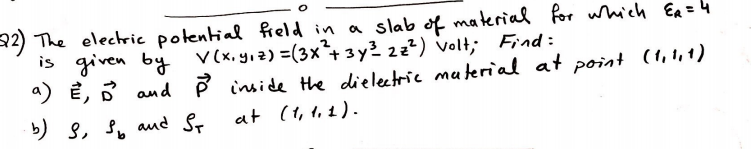 Q2) The electric potential field in a slab of material for which ε_R = 4
is given by V(x,y,z) = (3x² + 3y³ - 2z²) Volt; Find:
a) E⃗, D⃗ and P⃗ inside the dielectric material at point (1,1,1)
b) ρ, ρ_b and ρ_T at (1,1,1).